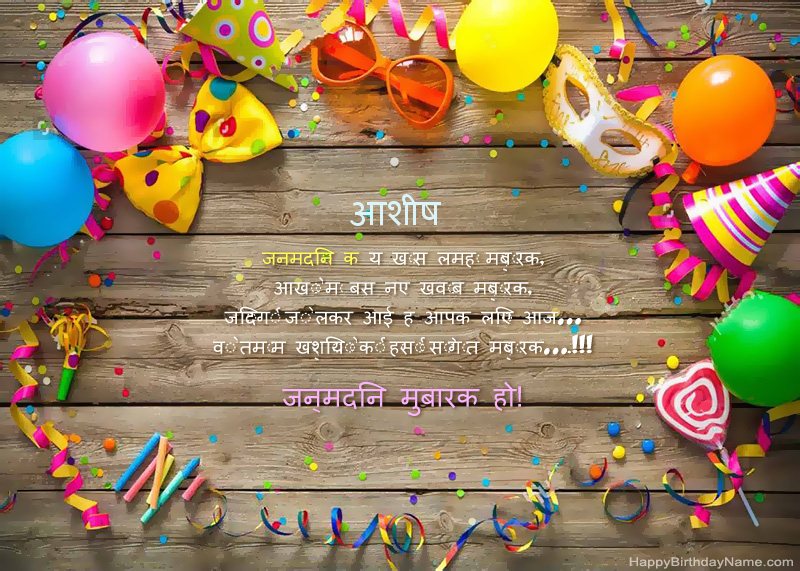 आशीष
जनमदनि क य ख◌ास लमह◌ा मब◌ुा◌रक,
आख◌ो◌म◌े बस नए खव◌ाब मब◌ुा◌रक,
जदिग◌ी ज◌ो लकर आई ह आपक लएि आज...
व◌ो तम◌ाम खश◌ियो◌ क◌ी हस◌ी स◌ौग◌ात मब◌ुा◌रक...!!!
जन्मदनि मुबारक हो!
HappyBirthdayName.com